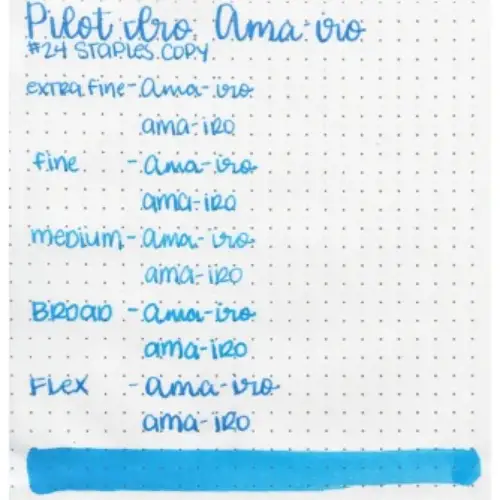 Pilot Iro Ama-iro
#24 STAPLES COPY
extra fine - Ama-iro
ama-iro
fine - Ama-iro
ama-iro
medium - Ama-iro
ama-iro
BROAD - Ama-iro
ama-iro
FLEX - Ama-iro
ama-iro